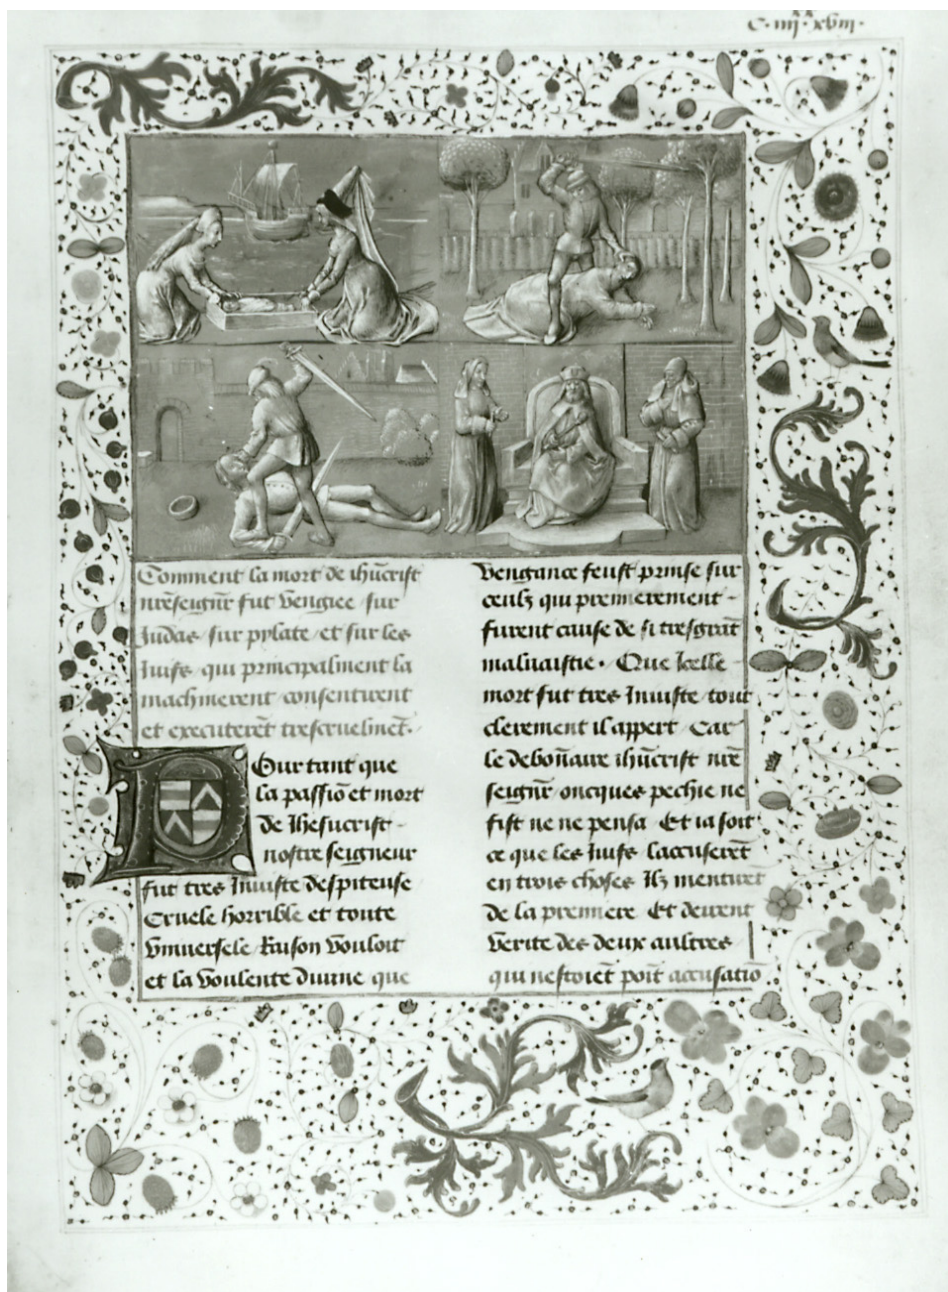 C. iiijxx xviij.
Comment la mort de ihūcrist
nr̄e seignr̄ fut vengiee sur
Judas sur pylate et sur les
Juifs qui principalment la
machinerent consentirent
et executerēt trescruelmēt.
Pour tant que
la passiō et mort
de Jhesucrist
nostre seigneur
fut tres Iniuste despiteuse
Cruele horrible et toute
vniuersele Raison vouloit
et la voulente diuine que
vengance feust prinse sur
ceulz qui premierement
furent cause de si tresgrāt
maluaistie. Que Icelle
mort fut tres Iniuste tout
clerement il appert Car
le debonnaire ihūcrist nr̄e
seignr̄ oncques pechie ne
fist ne ne pensa Et ia soit
ce que les Juifs laccuserēt
en trois choses Ilz mentirēt
de la premiere Et deirent
verite des deux aultres
qui nestoiēt poīt accusatiō